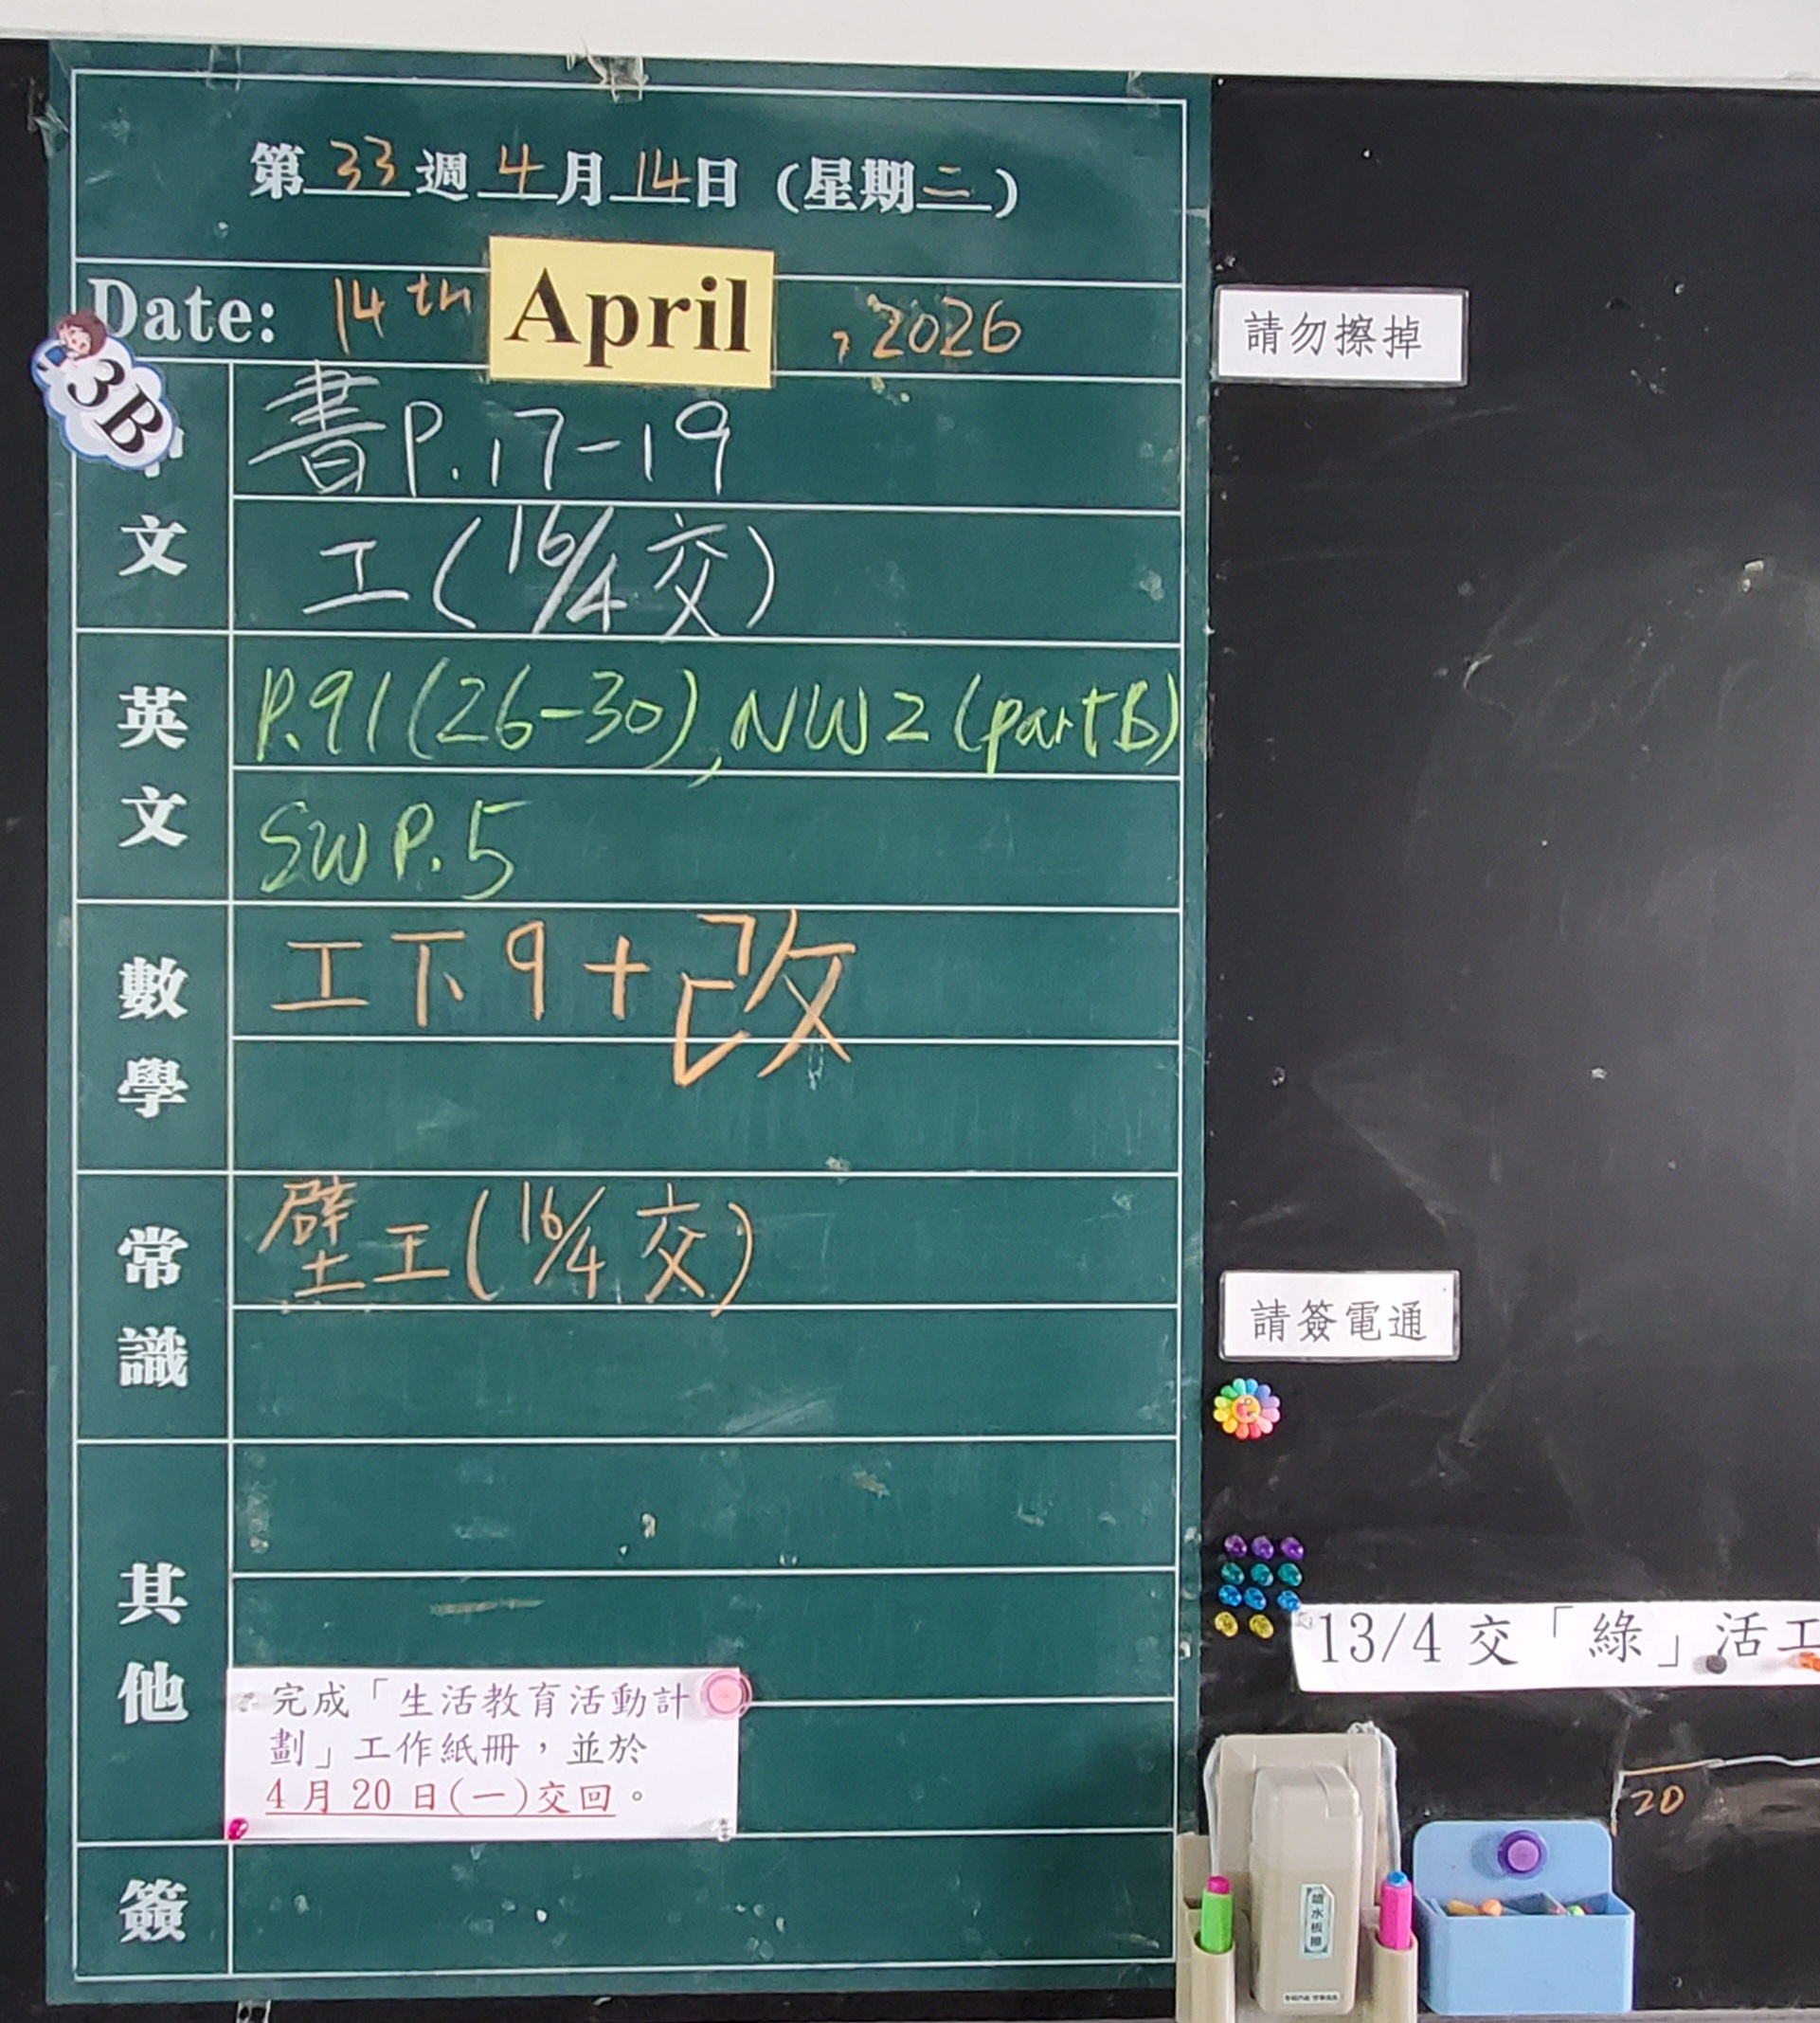 第33週4月14日(星期二)
Date: 14th April, 2026
3B
中文
書P.17-19
工(16/4交)
英文
P.91(26-30), NW2(part B)
SWP.5
數學
工下9+改
常識
壁工(16/4交)
其他
完成「生活教育活動計
劃」工作紙冊，並於
4月20日(一)交回。
簽
請勿擦掉
請簽電通
13/4交「綠」活工
20